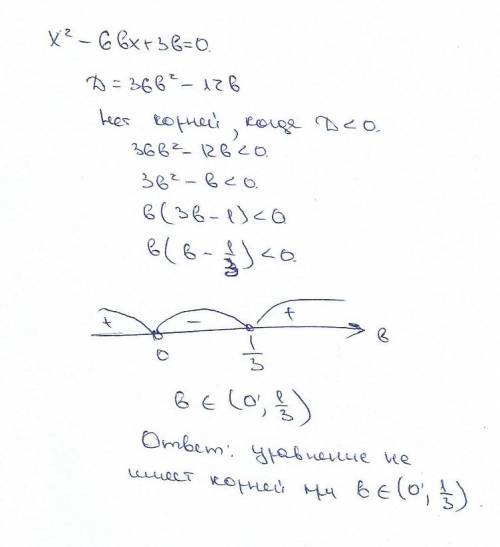 x² - 6вx + 3в = 0.
D = 36в² - 12в
Нет корней, когда D < 0.
36в² - 12в < 0.
3в² - в < 0.
в(3в - 1) < 0
в(в - 1/3) < 0.
+ - +
0 1/3 в
в ∈ (0; 1/3)
Ответ: уравнение не
имеет корней при в ∈ (0; 1/3).